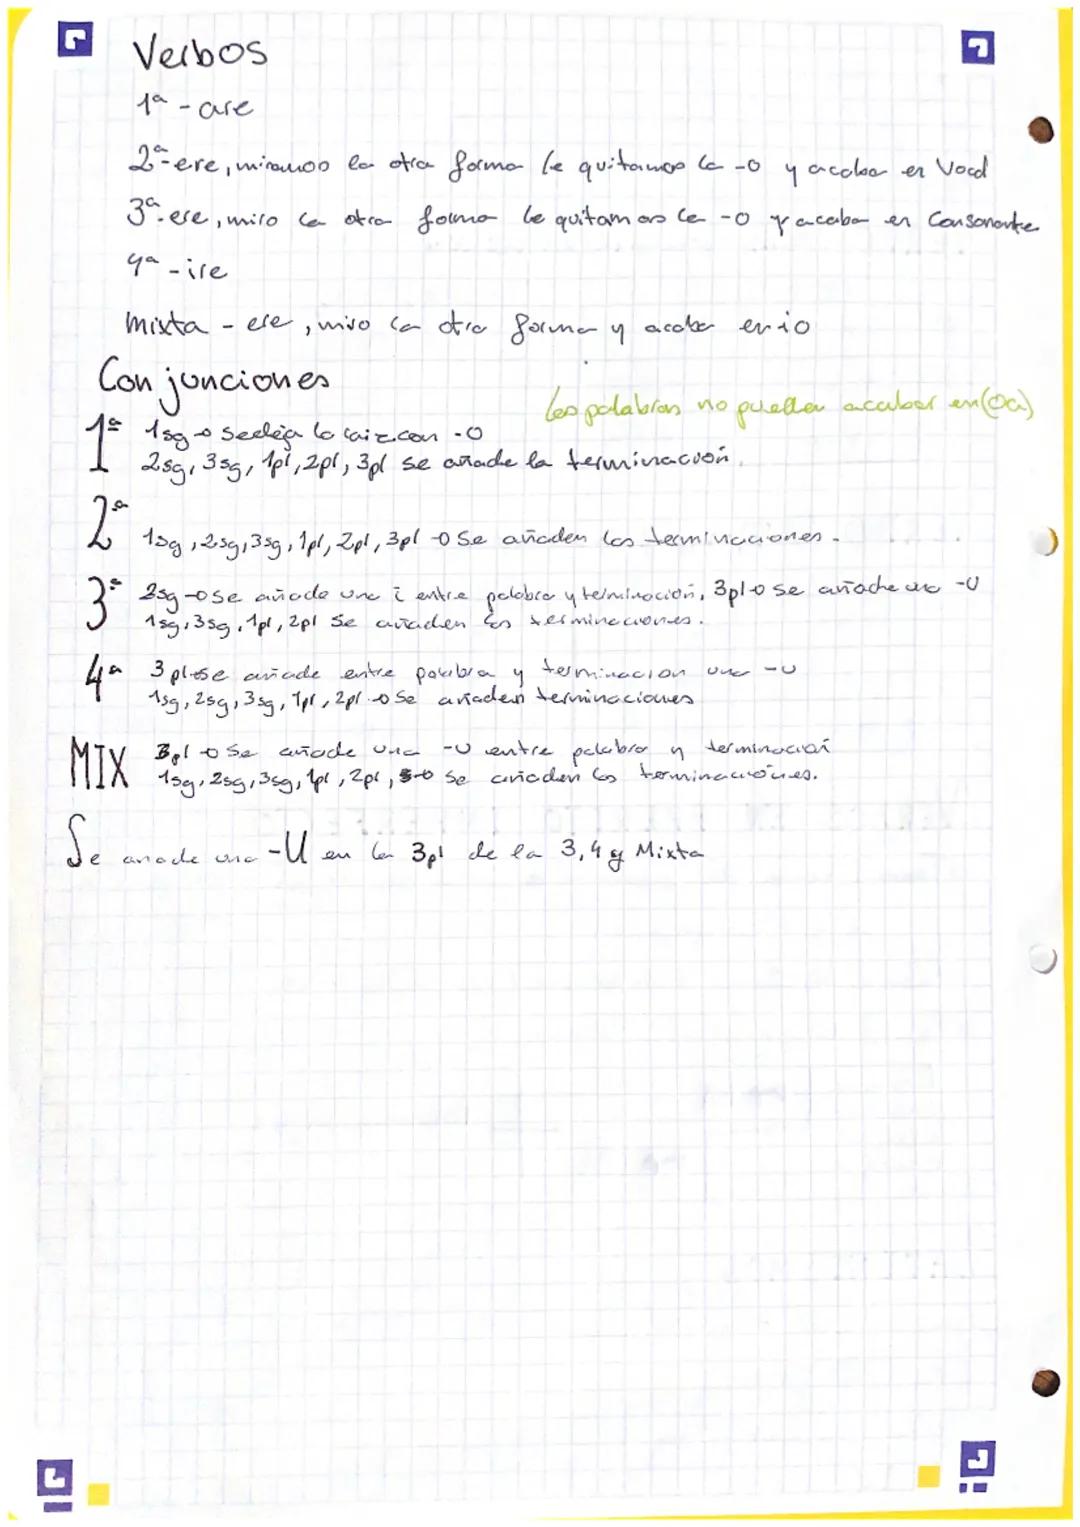 Verbos
1ª - are
2ª - ere, miramos la otra forma le quitamos la -o y acaba en Vocal
3ª - ere, miro la otra forma le quitamos la -o y acaba en Consonante
4ª - ire
mixta - ere, miro la otra forma y acaba en io
Conjunciones
Las palabras no pueden acabar en (oa)
1ª 1sg → se deja la raiz con -o
2sg, 3sg, 1pl, 2pl, 3pl se añade la terminación.
2ª 1sg, 2sg, 3sg, 1pl, 2pl, 3pl → Se añaden las terminaciones.
3ª 2sg → se añade una i entre palabra y terminación, 3pl → se añade una -U
1sg, 3sg, 1pl, 2pl se añaden las terminaciones.
4ª 3pl → se añade entre palabra y terminacion una -u
1sg, 2sg, 3sg, 1pl, 2pl → Se añaden terminaciones
MIX 3pl → Se añade una -U entre palabra y terminación
1sg, 2sg, 3sg, 1pl, 2pl, → se añaden las terminaciones.
Se añade una -U en la 3pl de la 3, 4 y Mixta